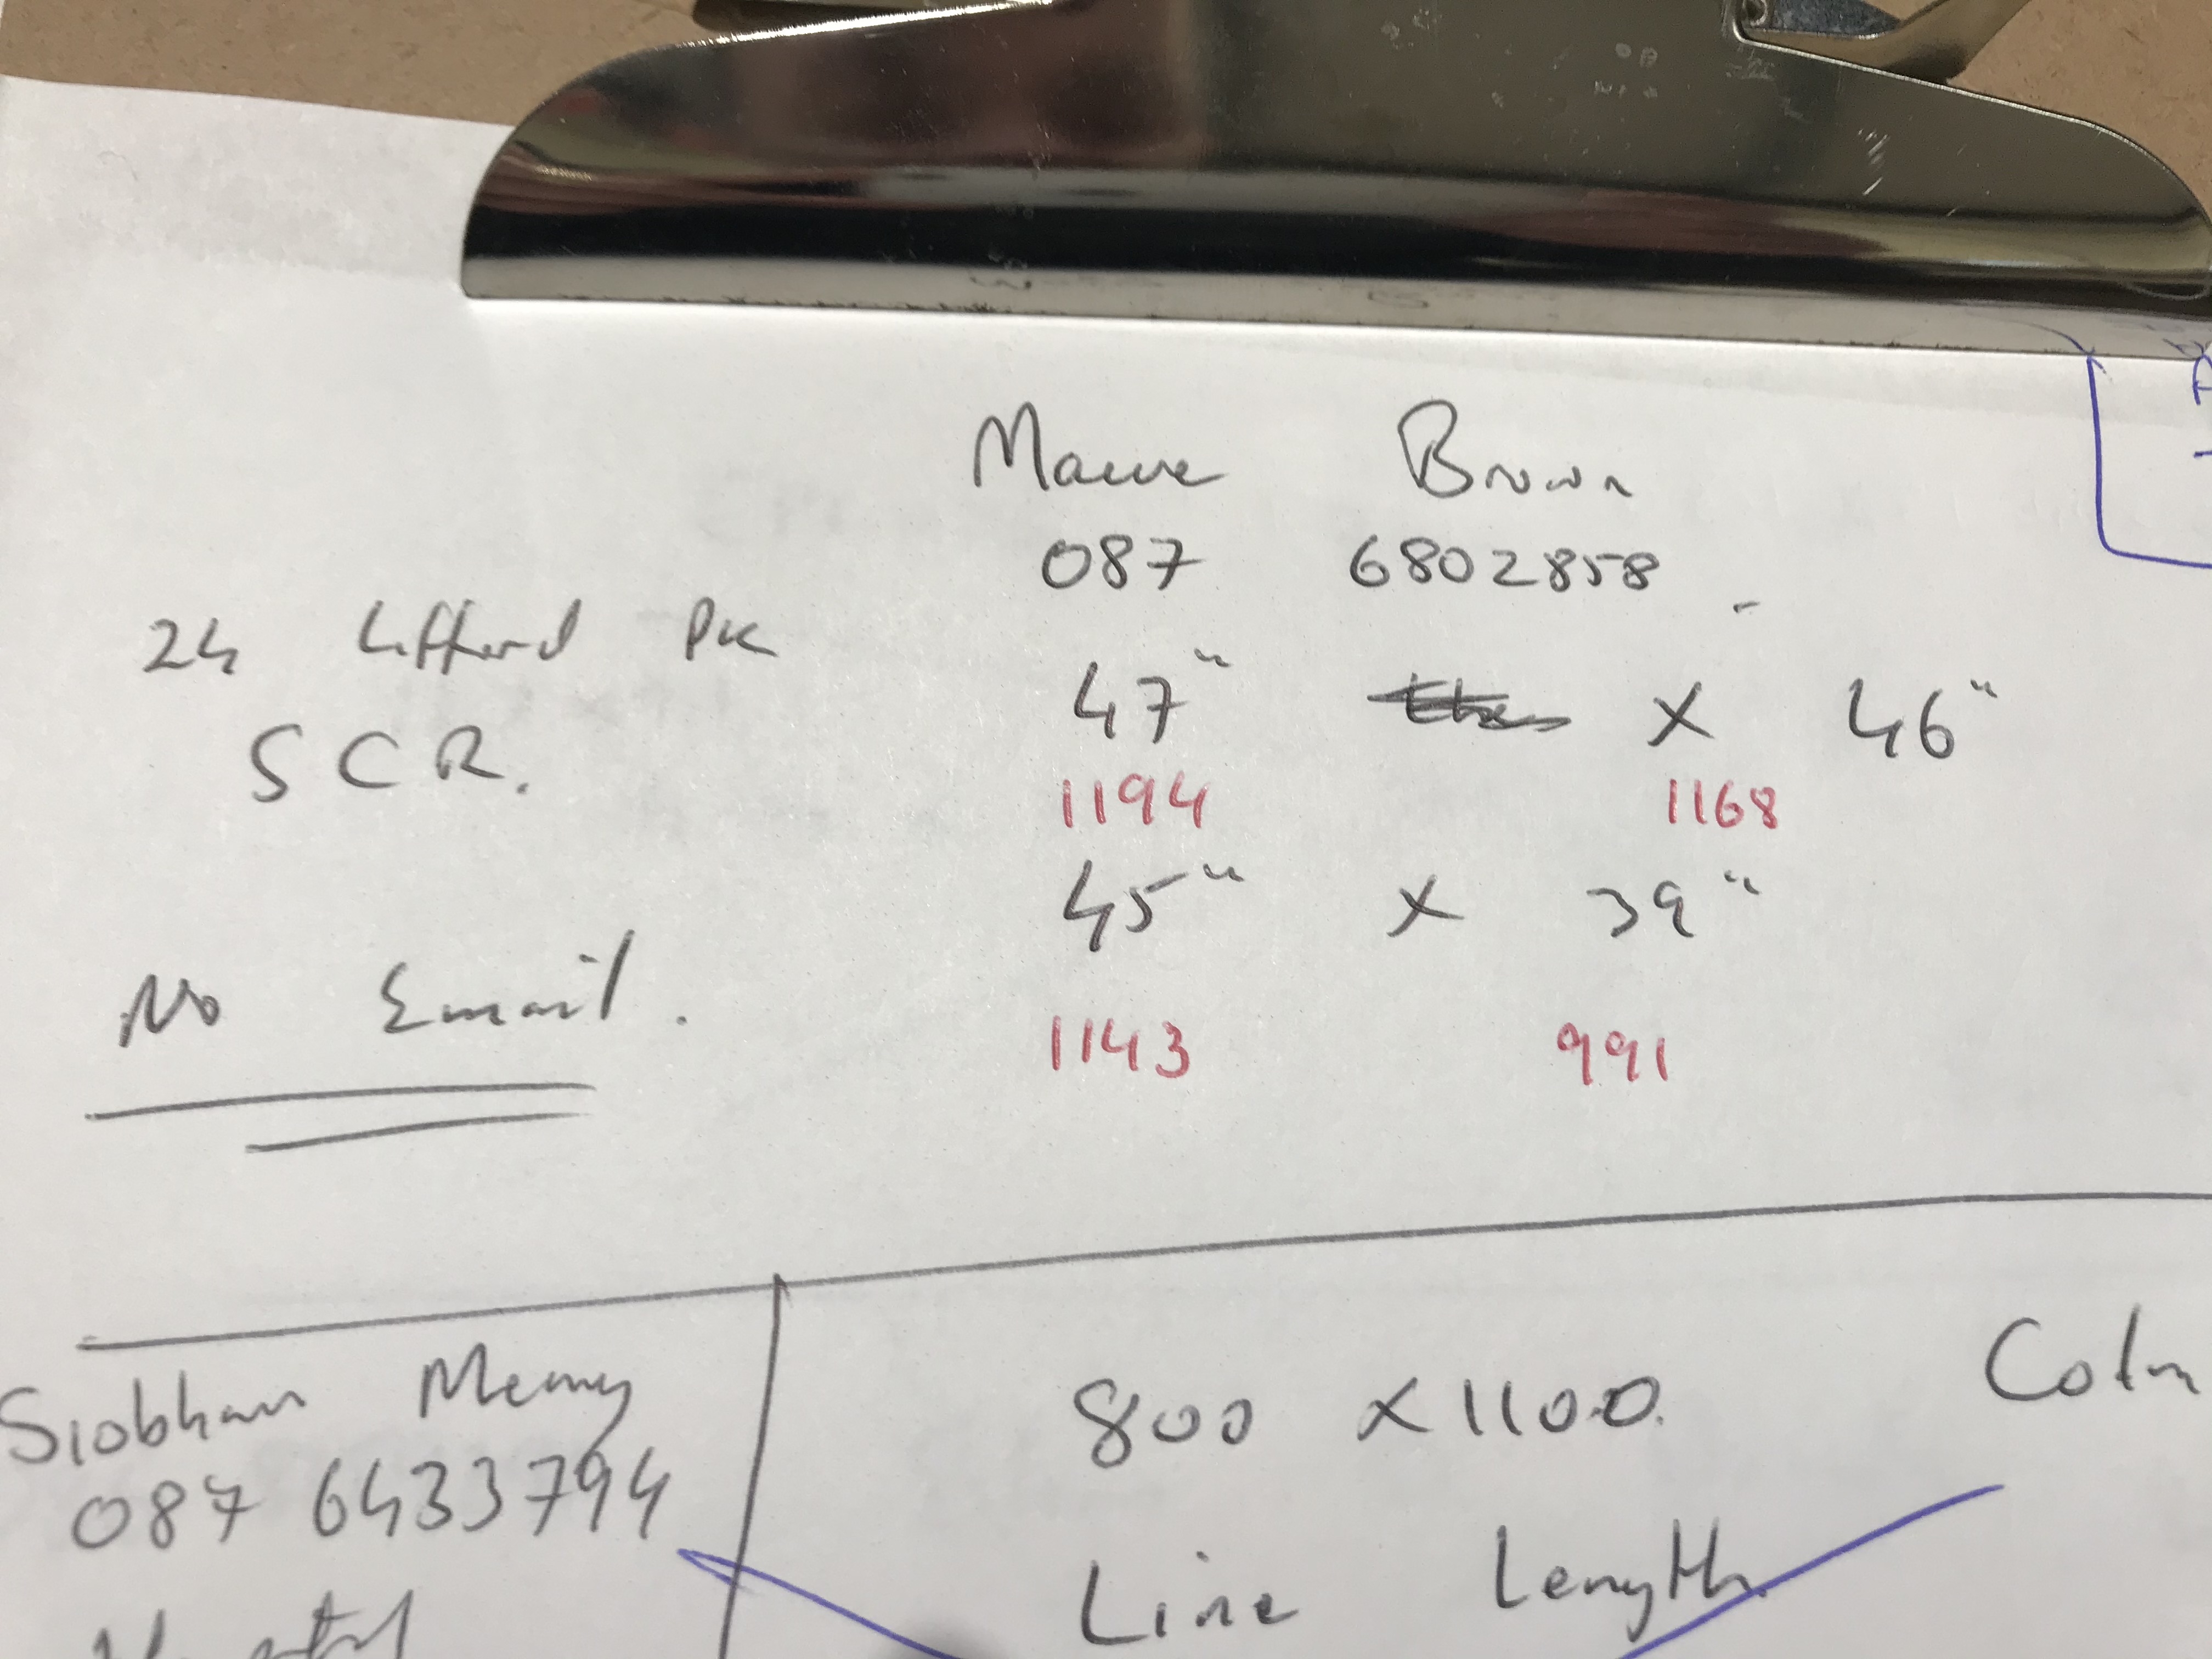 Maeve Brown
087 6802858
24 Lifford Pk
S C R.
47" x 46"
1194 1168
45" x 39"
1143 991
No Email.
Siobhan
087 6433794
800 x 1100
Colm
Line Length